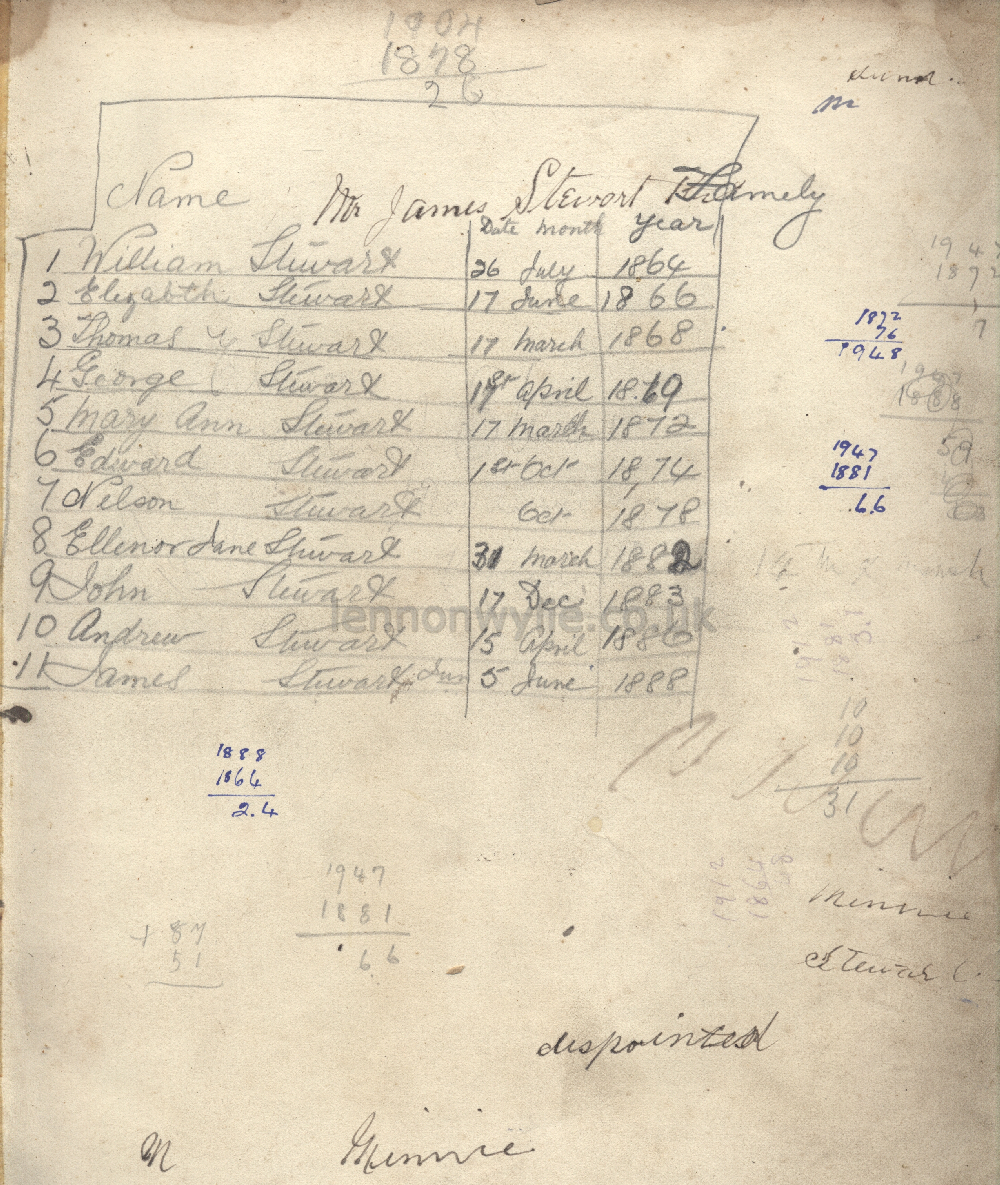 1904
1878
26
m
Name Mr James Stewort Famely
Date month year
1 William Stewart 26 July 1864
2 Elizabth Stewart 17 June 1866
3 Thomas Stewart 17 march 1868
4 George Stewart april 18.69
5 Mary Ann Stewart 17 march 1872
6 Edward Stewart 1st Oct 1874
7 Nelson Stewart Oct 1878
8 Ellenor Jane Stewart 31 march 1882
9 John Stewart 17 Dec 1883
10 Andrew Stewart 15 April 1886
11 James Stewart Jun 5 June 1888
lennonwylie.co.uk
1872
76
1948
1947
1881
66
10
10
10
31
1888
1864
2.4
1947
1881
66
+ 87
51
1912
1864
Minnie
Stewart
dispointed
M Minnie